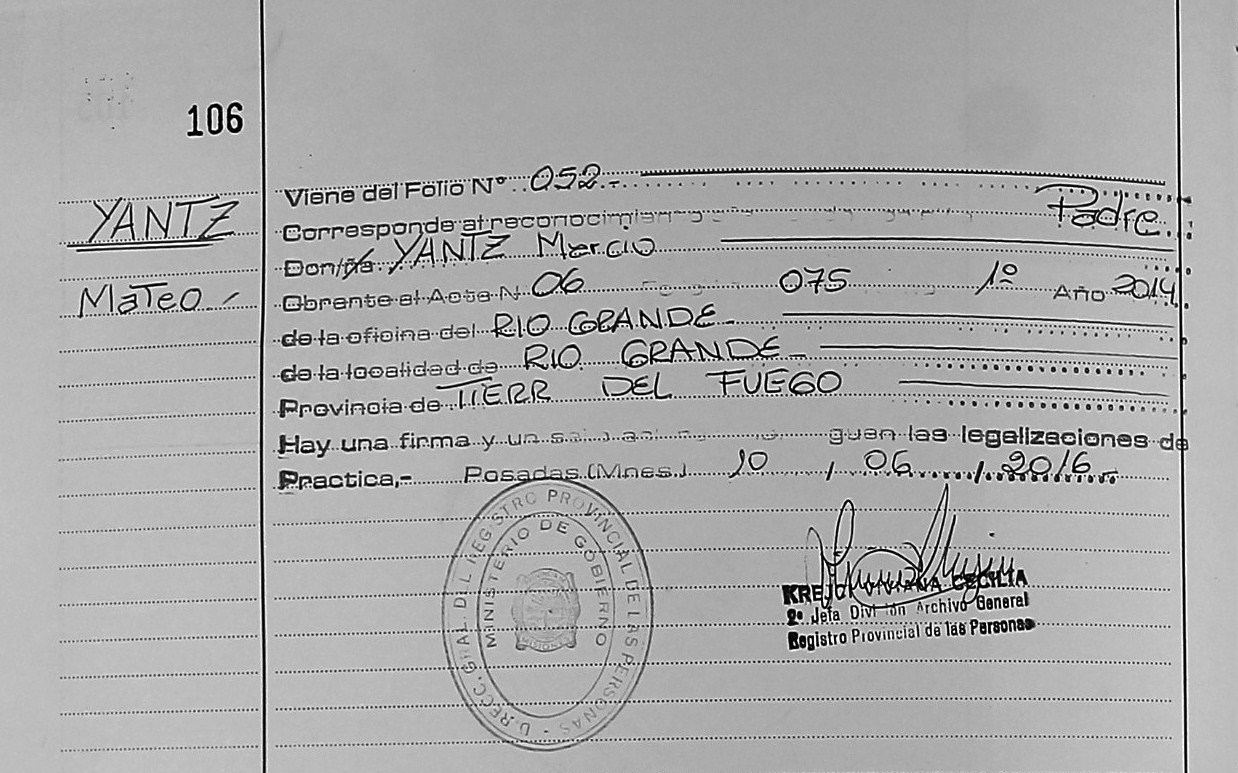 106
YANTZ
Mateo
Viene del Folio Nº 052.-
Corresponde al reconocimien Padre
Don/ña YANTZ Marcio
Obrante al Acta N 06 075 1º Año 2014
de la oficina del RIO GRANDE
de la localidad de RIO GRANDE
Provincia de TIERR DEL FUEGO
Hay una firma y un guen las legalizaciones de
Practica,- Posadas (Mnes.) 10 , 06 , 2016
DIRECC. GRAL. DEL REGISTRO PROVINCIAL DE LAS PERSONAS -
MINISTERIO DE GOBIERNO
MISIONES
VIVIANA CECILIA
2ª Jefa División Archivo General
Registro Provincial de las Personas